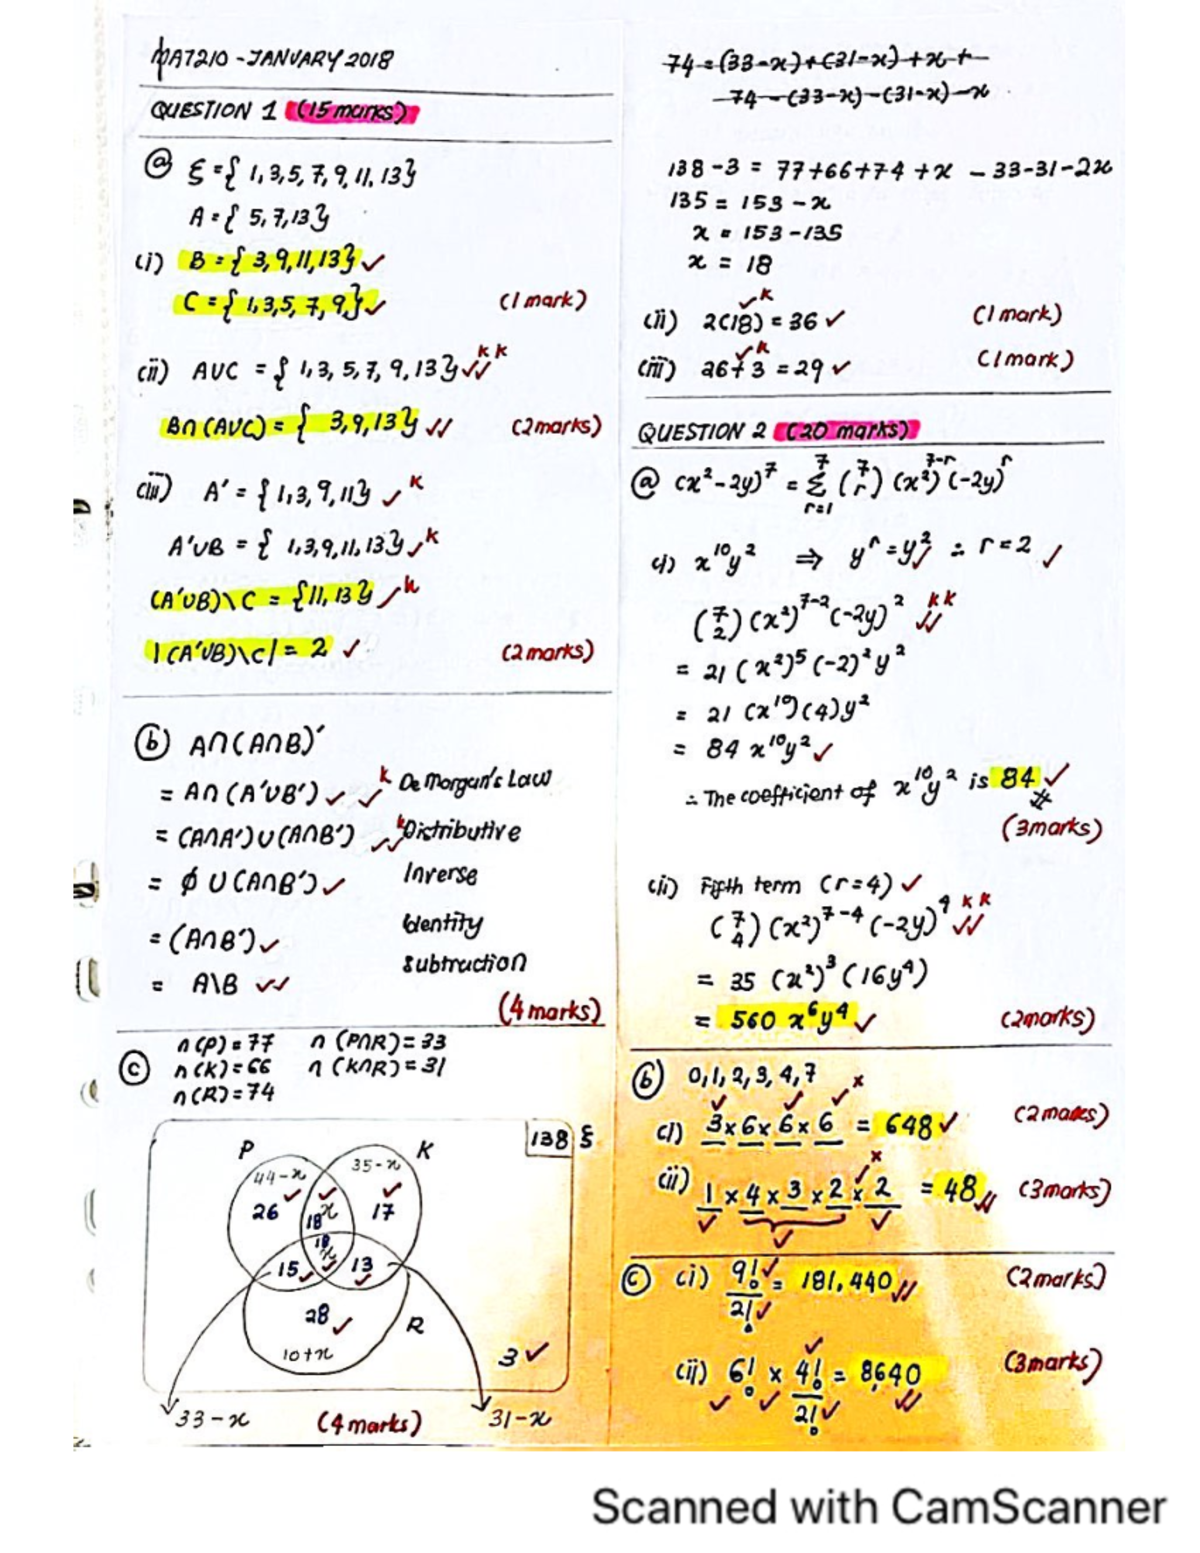 MAT210 - JANUARY 2018
QUESTION 1 (15 marks)
(a) ξ = { 1, 3, 5, 7, 9, 11, 13}
A = { 5, 7, 13}
(i) B = { 3, 9, 11, 13} ✓
C = { 1, 3, 5, 7, 9} ✓ (1 mark)
(ii) AUC = { 1, 3, 5, 7, 9, 13} ✓✓ K K
B∩(AUC) = { 3, 9, 13} ✓✓ (2 marks)
(iii) A' = { 1, 3, 9, 11} ✓ K
A'UB = { 1, 3, 9, 11, 13} ✓ K
(A'UB)\C = {11, 13} ✓ K
|(A'UB)\C| = 2 ✓ (2 marks)
(b) A∩(A∩B)'
= A∩(A'UB') ✓ ✓ K De Morgan's Law
= (A∩A')U(A∩B') ✓✓ K Distributive
= ϕ U (A∩B') ✓ Inverse
= (A∩B') ✓ Identity
= A\B ✓✓ Subtraction
(4 marks)
(c) n(P) = 77 n(P∩R) = 33
n(K) = 66 n(K∩R) = 31
n(R) = 74
138 ξ
P K
44-x 35-x
26 ✓ ✓ ✓
18 x 17
18
15 ✓ ✓ 13 ✓
28 ✓ R
10+x 3 ✓
33-x (4 marks) 31-x
74 = (33-x) + (31-x) + x +
74 - (33-x) - (31-x) - x
138 - 3 = 77+66+74 + x - 33-31-2x
135 = 153 - x
x = 153 - 135
x = 18
(ii) 2(18) = 36 ✓ ✓ K (1 mark)
(iii) 26+3 = 29 ✓ ✓ K (1 mark)
QUESTION 2 (20 marks)
(a) (x² - 2y)⁷ = Σ⁷ᵣ₌₁ (7 r) (x²)⁷⁻ʳ (-2y)ʳ
(i) x¹⁰y² ⇒ yʳ = y² ✓ ∴ r = 2 ✓
(7 2) (x²)⁷⁻² (-2y)² ✓✓ K K
= 21 (x²)⁵ (-2)² y²
= 21 (x¹⁰) (4) y²
= 84 x¹⁰y² ✓
∴ The coefficient of x¹⁰y² is 84 ✓ #
(3 marks)
(ii) Fifth term (r=4) ✓
(7 4) (x²)⁷⁻⁴ (-2y)⁴ ✓✓ K K
= 35 (x²)³ (16y⁴)
= 560 x⁶y⁴ ✓ (2 marks)
(b) 0, 1, 2, 3, 4, 7
(i) 3 x 6 x 6 x 6 = 648 ✓ (2 marks)
(ii) 1 x 4 x 3 x 2 x 2 = 48 ✓✓ (3 marks)
(c) (i) 9!/2! = 181,440 ✓✓ (2 marks)
(ii) 6! x 4!/2! = 8640 ✓✓ (3 marks)
Scanned with CamScanner